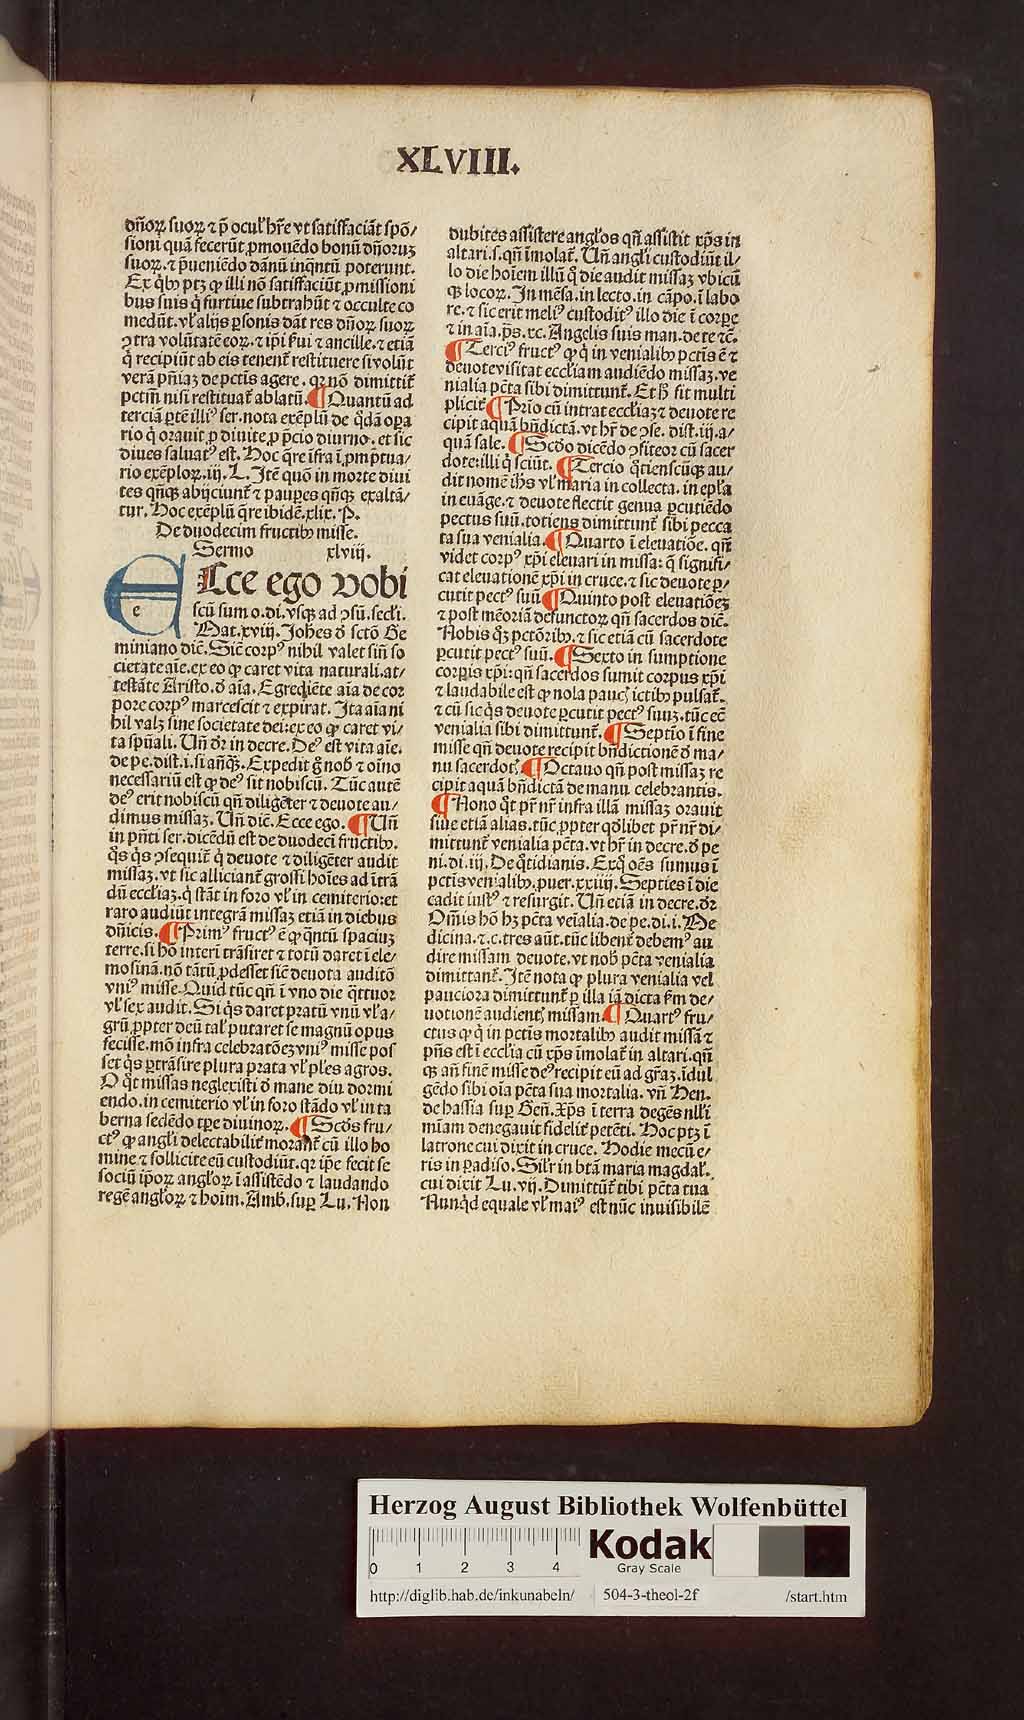 XLVIII.
dño𝈖 suo𝈖 ⁊ p̄ ocul' hr̄e vt satiſfaciāt ſpō/
ſioni quā fecerūt ꝓmouēdo bonū dñoruꝫ
ſuoꝝ.⁊ p̄ueniēdo dānū inqntū poterunt.
Ex qͥbꝰ ptꝫ ꝙ illi nō ſatiſfaciūt ꝓmiſſioni
bus ſuis qͥ furtiue ſubtrahūt ⁊ occulte co
medūt. vl' alijs ꝑſonis dāt res dñoꝝ ſuoꝝ
ꝯtra volūtatē eoꝝ. ⁊ ip̄i ſ'ui ⁊ ancille. ⁊ etiā
qͥ recipiūt ab eis tenent᷑ reſtituere ſi volūt
verā pn̄iaꝫ de pctīs agere. qꝛ nō dimittit᷑
pctm̄ niſi reſtituat᷑ ablatū. ¶ Quantū ad
terciā ꝑtē illiꝰ ſer. nota exēplū de qͦdā oꝑa
rio qͥ orauit ꝓ diuite ꝓ p̄cio diurno. et ſic
diues ſaluatꝰ eſt. Hoc q̄re īfra ī ꝓmptua/
rio exēploꝝ.iij. L. Itē quō in morte diui
tes qn̄qꝫ abijciunt᷑ ⁊ pauꝑes qn̄qꝫ exaltā/
tur. Hoc exēplū q̄re ibidē.xlix. P.
De duodecim fructibꝰ miſſe.
Sermo xlviij.
e
Ecce ego vobi
ſcū ſum o. di. vſqꝫ ad ꝯſū. ſecl'i.
Mat. xviij. Joh̄es ō ſctō Ge
miniano dic̄. Sic̄ corpꝰ nihil valet ſin̄ ſo
cietate aīe. ex eo ꝙ caret vita naturali. at/
teſtāte Ariſto. ō aīa. Egrediēte aīa de cor
pore corpꝰ marceſcit ⁊ expirat. Ita aīa ni
hil valꝫ ſine ſocietate dei: ex eo ꝙ caret vi/
ta ſpūali. Un̄ ōr in decre. Deꝰ eſt vita aīe.
de pe. diſt. i. ſi an̄qꝫ. Expedit g̊ nob̄ ⁊ oīno
neceſſariū eſt ꝙ deꝰ ſit nobiſcū. Tūc autē
deꝰ erit nobiſcū qn̄ diligēter ⁊ deuote au/
dimus miſſaꝫ. Un̄ dic̄. Ecce ego. ¶ Un̄
in pn̄ti ſer. dicēdū eſt de duodecī fructibꝰ.
qͦs qͥs ꝯſequit᷑ qͥ deuote ⁊ diligēter audit
miſſaꝫ. vt ſic alliciant᷑ groſſi hoīes ad ītrā
dū eccl'iaꝫ. qͥ ſtāt in foro vl' in cemiterio: et
raro audiūt integrā miſſaꝫ etiā in diebus
dn̄icis. ¶ Primꝰ fructꝰ ē ꝙ qͣntū ſpaciuꝫ
terre. ſi hō interī trāſiret ⁊ totū daret ī ele/
moſinā. nō tātū ꝓdeſſet ſic̄ deuota auditō
vniꝰ miſſe. Quid tūc qn̄ ī vno die qͣttuor
vl' ſex audit. Si qͥs daret pratū vnū vl' a/
grū ꝓpter deū tal' putaret ſe magnū opus
feciſſe. mō infra celebratōeꝫ vniꝰ miſſe poſ
ſet qͥs ꝑtrāſire plura prata vl' pl'es agros.
O qͦt miſſas neglexiſti ō mane diu dormi
endo. in cemiterio vl' in foro ſtādo vl' in ta
berna ſedēdo tꝑe diuinoꝝ. ¶ Scōs fru/
ctꝰ ꝙ angl'i delectabilit᷑ morant᷑ cū illo ho
mine ⁊ ſollicite eū cuſtodiūt. qꝛ ip̄e fecit ſe
ſociū ip̄oꝝ angl'oꝝ ī aſſiſtēdo ⁊ laudando
regē angl'oꝝ ⁊ hoīm. Amb. ſuꝑ Lu. Non
dubites aſſiſtere angl'os qn̄ aſſiſtit xp̄s in
altari. ſ. qn̄ īmolat᷑. Un̄ angl'i cuſtodiūt il/
lo die hoīem illū qͥ die audit miſſaꝫ vbicū
qꝫ locoꝝ. In mēſa. in lecto. in cāpo. ī labo
re. ⁊ ſic erit meliꝰ cuſtoditꝰ illo die ī corꝑe
⁊ in aīa. p̄s. xc. Angelis ſuis man. de te ⁊c̄.
¶ Terciꝰ fructꝰ ꝙ qͥ in venialibꝰ pctīs ē ⁊
deuote viſitat eccl'iam audiēdo miſſaꝫ. ve
nialia pcta ſibi dimittunt᷑. Et h̄ fit multi
plicit᷑ ¶ Prīo cū intrat eccl'iaꝫ ⁊ deuote re
cipit aquā bn̄dictā. vt hr̄ de ꝯſe. diſt. iij. a/
quā ſale. ¶ Scd̄o dicēdo ꝯfiteor cū ſacer
dote: illi qͥ ſciūt. ¶ Tercio qͦtienſcūqꝫ au/
dit nomē ih̄s vl' maria in collecta. in epl'a
in euāge. ⁊ deuote flectit genua ꝑcutiēdo
pectus ſuū. totiens dimittunt᷑ ſibi pecca
ta ſua venialia. ¶ Quarto ī eleuatiōe. qn̄
videt corpꝰ xp̄i eleuari in miſſa: qͥ ſignifi/
cat eleuationē xp̄i in cruce. ⁊ ſic deuote ꝑ/
cutit pectꝰ ſuū ¶ Quinto poſt eleuatiōeꝫ
⁊ poſt mēoriā defunctoꝝ qn̄ ſacerdos dic̄.
Nobis qͦꝫ pctōribꝰ. ⁊ ſic etiā cū ſacerdote
ꝑcutit pectꝰ ſuū. ¶ Sexto in ſumptione
corꝑis xp̄i: qn̄ ſacerdos ſumit corpus xp̄i
⁊ laudabile eſt ꝙ nola paucꝭ ictibꝰ pulſat᷑.
⁊ cū ſic qͥs deuote ꝑcutit pectꝰ ſuuꝫ. tūc ec̄
venialia ſibi dimittunt᷑. ¶ Septīo ī fine
miſſe qn̄ deuote recipit bn̄dictionē ō ma/
nu ſacerdotꝭ. ¶ Octauo qn̄ poſt miſſaꝫ re
cipit aquā bn̄dictā de manu celebrantis.
¶ Nono qͦt pr̄ nr̄ infra illā miſſaꝫ orauit
ſiue etiā alias. tūc ꝓpter qͦdlibet pr̄ nr̄ di/
mittunt᷑ venialia pcta. vt hr̄ in decre. ō pe
ni. di. iij. De qͦtidianis. Ex qͦ oēs ſumus ī
pctīs venialibꝰ. ꝓuer. xxiiij. Septies ī die
cadit iuſtꝰ ⁊ reſurgit. Un̄ etiā in decre. ōr
Om̄is hō hꝫ pcta veīalia. de pe. di. i. Me
dicina. ⁊.c. tres aūt. tūc libent᷑ debemꝰ au
dire miſſam deuote. vt nob̄ pcta venialia
dimittant᷑. Itē nota ꝙ plura venialia vel
pauciora dimittunt᷑ ꝑ illa iā dicta ẜm de/
uotionē audientꝭ miſſam. ¶ Quartꝰ fru/
ctus ꝙ qͥ in pctīs mortalibꝰ audit miſſā ⁊
pn̄s eſt ī eccl'ia cū xp̄s īmolat᷑ in altari. qn̄
qꝫ an̄ finē miſſe deꝰ recipit eū ad gr̄aꝫ. īdul
gēdo ſibi oīa pcta ſua mortalia. vn̄ Hen.
de haſſia ſuꝑ Gen̄. Xp̄s ī terra degēs nll'i
mīam denegauit fidelit᷑ petēti. Hoc ptꝫ ī
latrone cui dixit in cruce. Hodie mecū e/
ris in ꝑadiſo. Sil'r in btā maria magdal'.
cui dixit Lu. vij. Dimittūt᷑ tibi pcta tua
Nunqͥd equale vl' maiꝰ eſt nūc inuiſibilē
Herzog August Bibliothek Wolfenbüttel
0 1 2 3 4
Kodak
Gray Scale
http://diglib.hab.de/inkunabeln/ 504-3-theol-2f /start.htm